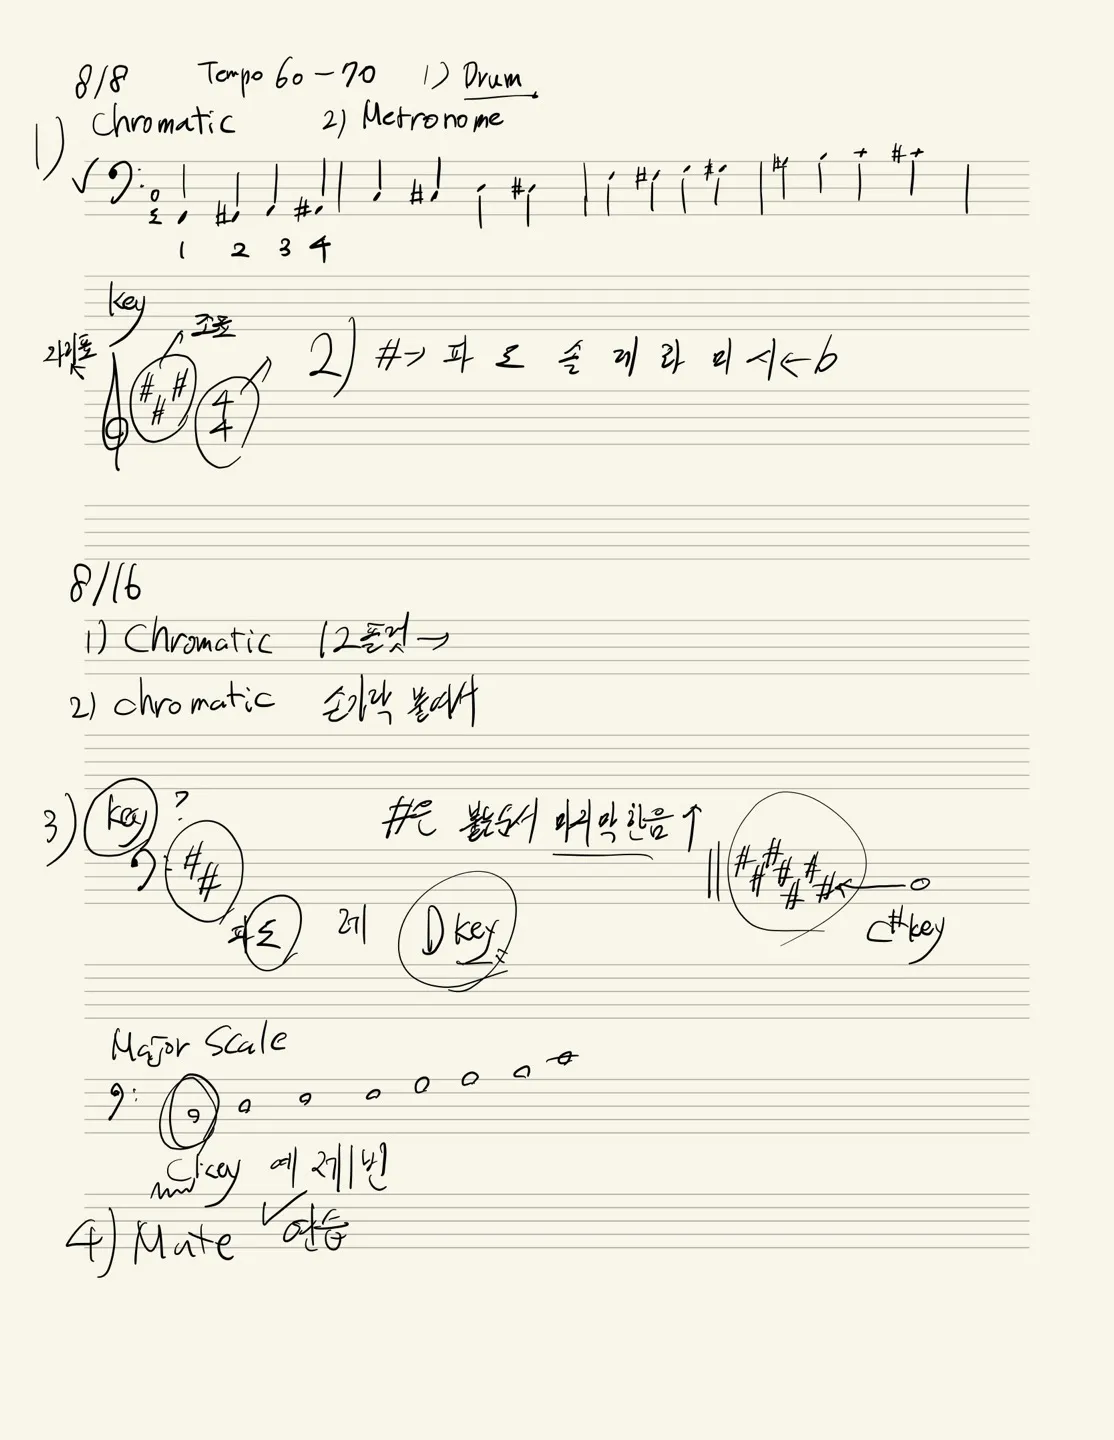 8/8 Tempo 60-70 1) Drum
1) Chromatic 2) Metronome
1 2 3 4
key
조표
4
4
2) #→ 파 도 솔 레 라 미 시 ← b
8/16
1) Chromatic 12플렛 →
2) chromatic 손가락 붙여서
3) key ?
#은 붙는순서 마지막 한음 ↑
파도 레 D key
C# key
Major Scale
C key
4) Mute ✓ 연습